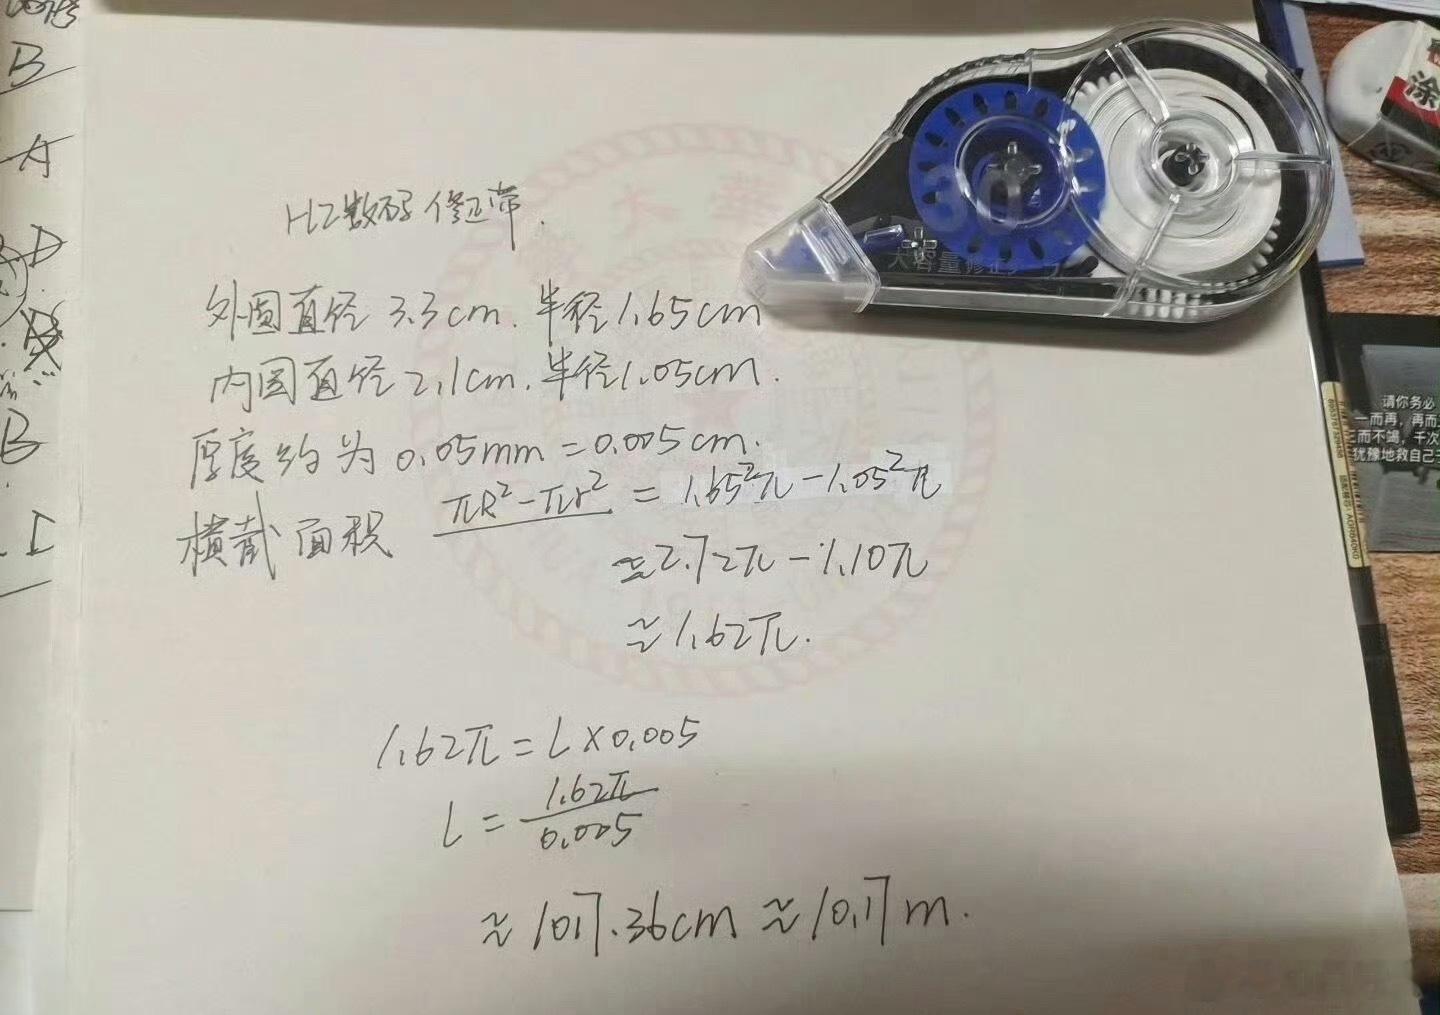 B
A
D
B
I
HZ数码修正带.
外圆直径3.3cm.半径1.65cm
内圆直径2.1cm.半径1.05cm.
厚度约为0.05mm=0.005cm.
横截面积 πR²-πr² = 1.65²π-1.05²π
≈2.72π-1.10π
≈1.62π.
1.62π=L×0.005
L=1.62π/0.005
≈1017.36cm≈10.17m.
30
大容量修正
涂
请你务必
一而再，再而
三而不竭，千次
犹豫地救自己